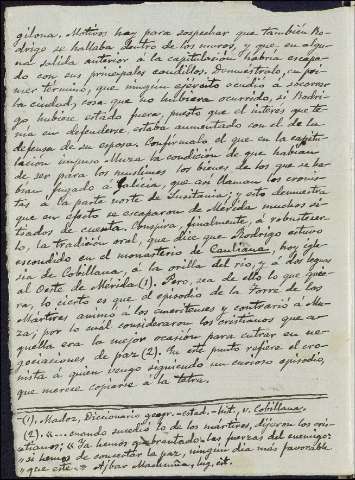 gilona. Motivos hay para sospechar que también Ro-
drigo se hallaba dentro de los muros, y que, en algu-
na salida anterior á la capitulación habría escapa-
do con sus principales caudillos. Demuéstralo, en pri-
mer término, que ningun ejército acudió á socorrer
la ciudad, cosa que no hubiera ocurrido, si Rodri-
go hubiese estado fuera, puesto que el interés que te-
nía en defenderse, estaba aumentado con el de la
defensa de su esposa. Confírmalo el que en la capitu-
lación impuso Muza la condición de que habían
de ser para los muslimes los bienes de los que se ha-
bían fugado á Galicia, que así llaman los cronis-
tas á la parte norte de Lusitania; y esto demuestra
que en efecto se escaparon de Mérida muchos si-
tiados de cuenta. Conspira, finalmente, á robustecer-
lo, la tradición oral, que dice que Rodrigo estuvo
escondido en el monasterio de Cauliana, hoy igle-
sia de Cobillana, á la orilla del río, y á dos leguas
al Oeste de Mérida (1). Pero, sea de ello lo que quie-
ra, lo cierto es que el episodio de la Torre de los
Mártires animó á los emeritenses y contrarió á Mu-
za, por lo cual consideraron los cristianos que a-
quella era la mejor ocasión para entrar en ne-
gociaciones de paz (2). En este punto refiere el cro-
nista á quien vengo siguiendo un curioso episodio,
que merece copiarse á la letra.
(1). Madoz, Diccionario geogr.-estad.-hist., v. Cobillana.
(2). «... cuando sucedió lo de los mártires, dijeron los cris-
tianos: «Ya hemos quebrantado las fuerzas del enemigo:
» si hemos de concertar la paz, ningun día más favorable
» que este.» Ajbar Machmuâ, lug. cit.